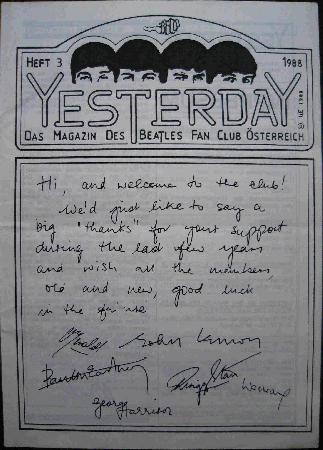 HEFT 3 1988
YESTERDAY
DAS MAGAZIN DES BEATLES FAN CLUB ÖSTERREICH
Hi, and welcome to the club!
We'd just like to say a
big "thanks" for your support
during the last few years
and wish all the members,
old and new, good luck
in the
John Lennon
Paul McCartney
Ringo Starr
George
Harrison